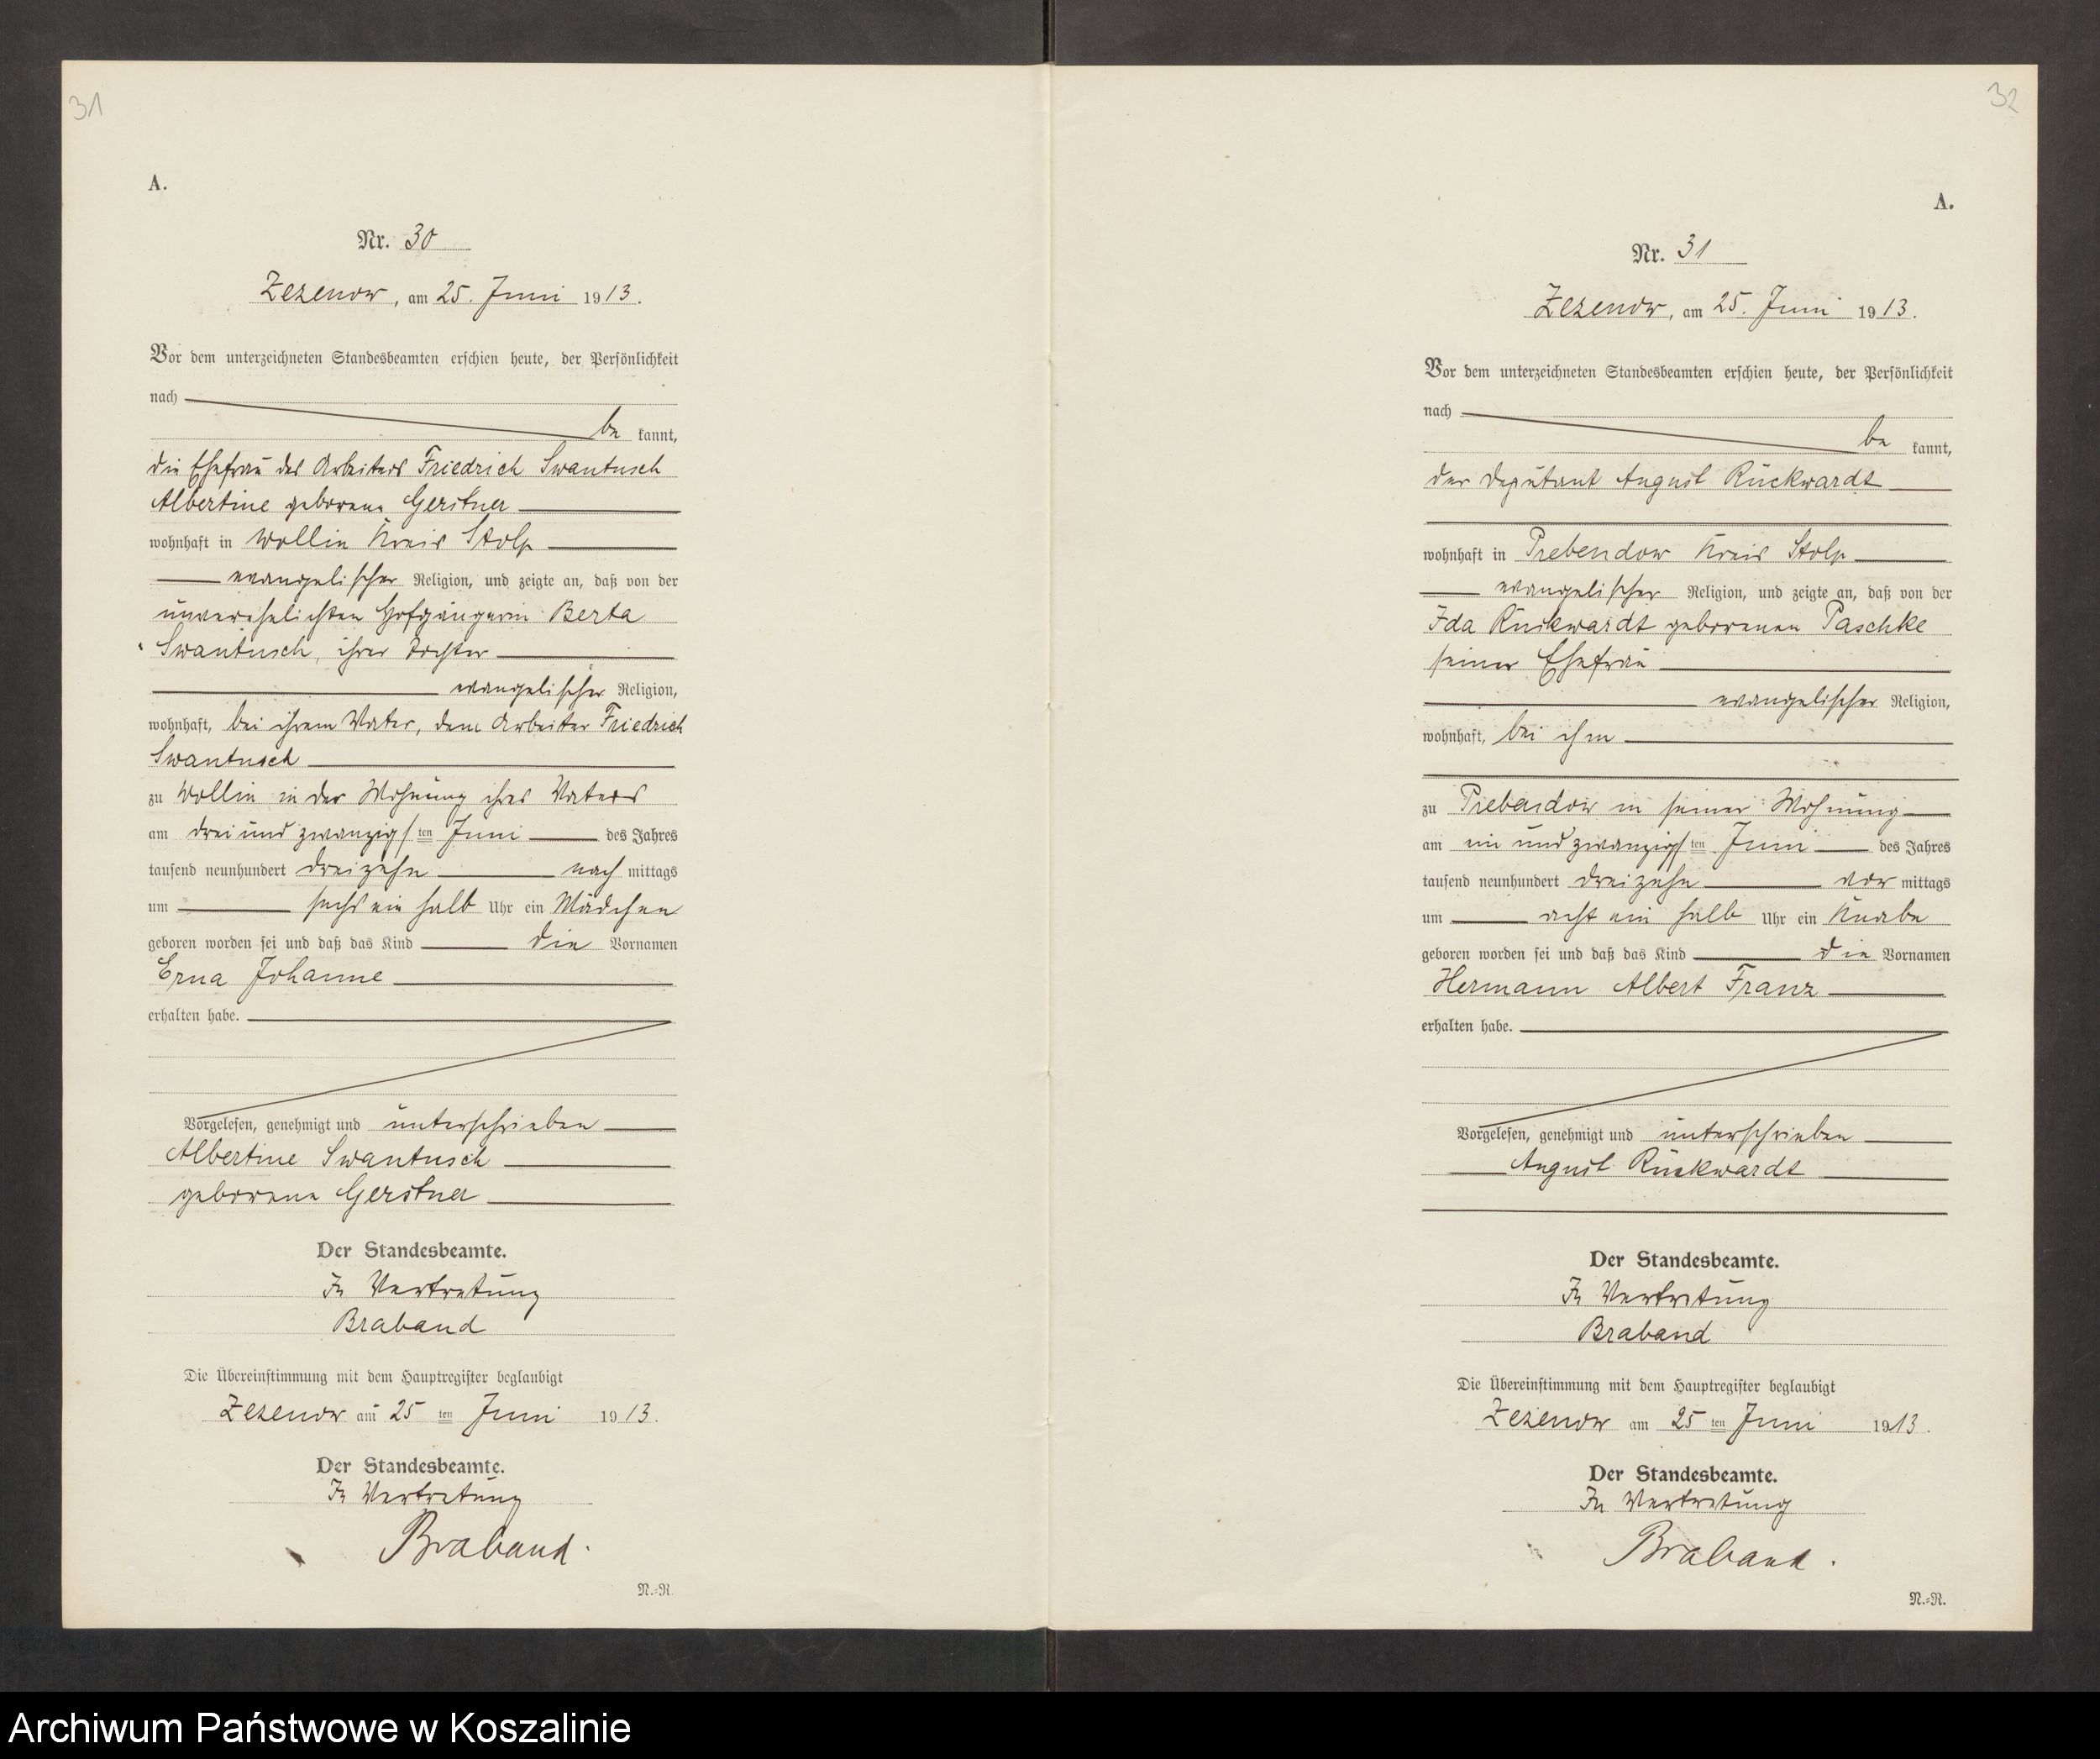 31
A.
Nr. 30
Zezenow, am 25. Juni 1913.
Vor dem unterzeichneten Standesbeamten erschien heute, der Persönlichkeit
nach
be kannt,
die Ehefrau des Arbeiters Friedrich Swantusch
Albertine geborene Gerstner
wohnhaft in Wollin Kreis Stolp
evangelischer Religion, und zeigte an, daß von der
unverehelichten Hofgängerin Berta
Swantusch, ihrer Tochter
evangelischer Religion,
wohnhaft, bei ihrem Vater, dem Arbeiter Friedrich
Swantusch
zu Wollin in der Wohnung ihres Vaters
am drei und zwanzigsten Juni des Jahres
tausend neunhundert dreizehn nach mittags
um sechs ein halb Uhr ein Mädchen
geboren worden sei und daß das Kind die Vornamen
Erna Johanne
erhalten habe.
Vorgelesen, genehmigt und unterschrieben
Albertine Swantusch
geborene Gerstner
Der Standesbeamte.
In Vertretung
Braband
Die Übereinstimmung mit dem Hauptregister beglaubigt
Zezenow am 25 ten Juni 1913.
Der Standesbeamte.
In Vertretung
Braband.
N.=R.
32
A.
Nr. 31
Zezenow, am 25. Juni 1913.
Vor dem unterzeichneten Standesbeamten erschien heute, der Persönlichkeit
nach
be kannt,
der Deputant August Rückwardt
wohnhaft in Prebendow Kreis Stolp
evangelischer Religion, und zeigte an, daß von der
Ida Rückwardt geborenen Paschke
seiner Ehefrau
evangelischer Religion,
wohnhaft, bei ihm
zu Prebendow in seiner Wohnung
am ein und zwanzigsten Juni des Jahres
tausend neunhundert dreizehn vor mittags
um acht ein halb Uhr ein Knabe
geboren worden sei und daß das Kind die Vornamen
Hermann Albert Franz
erhalten habe.
Vorgelesen, genehmigt und unterschrieben
August Rückwardt
Der Standesbeamte.
In Vertretung
Braband
Die Übereinstimmung mit dem Hauptregister beglaubigt
Zezenow am 25 ten Juni 1913.
Der Standesbeamte.
In Vertretung
Braband.
N.=R.
Archiwum Państwowe w Koszalinie